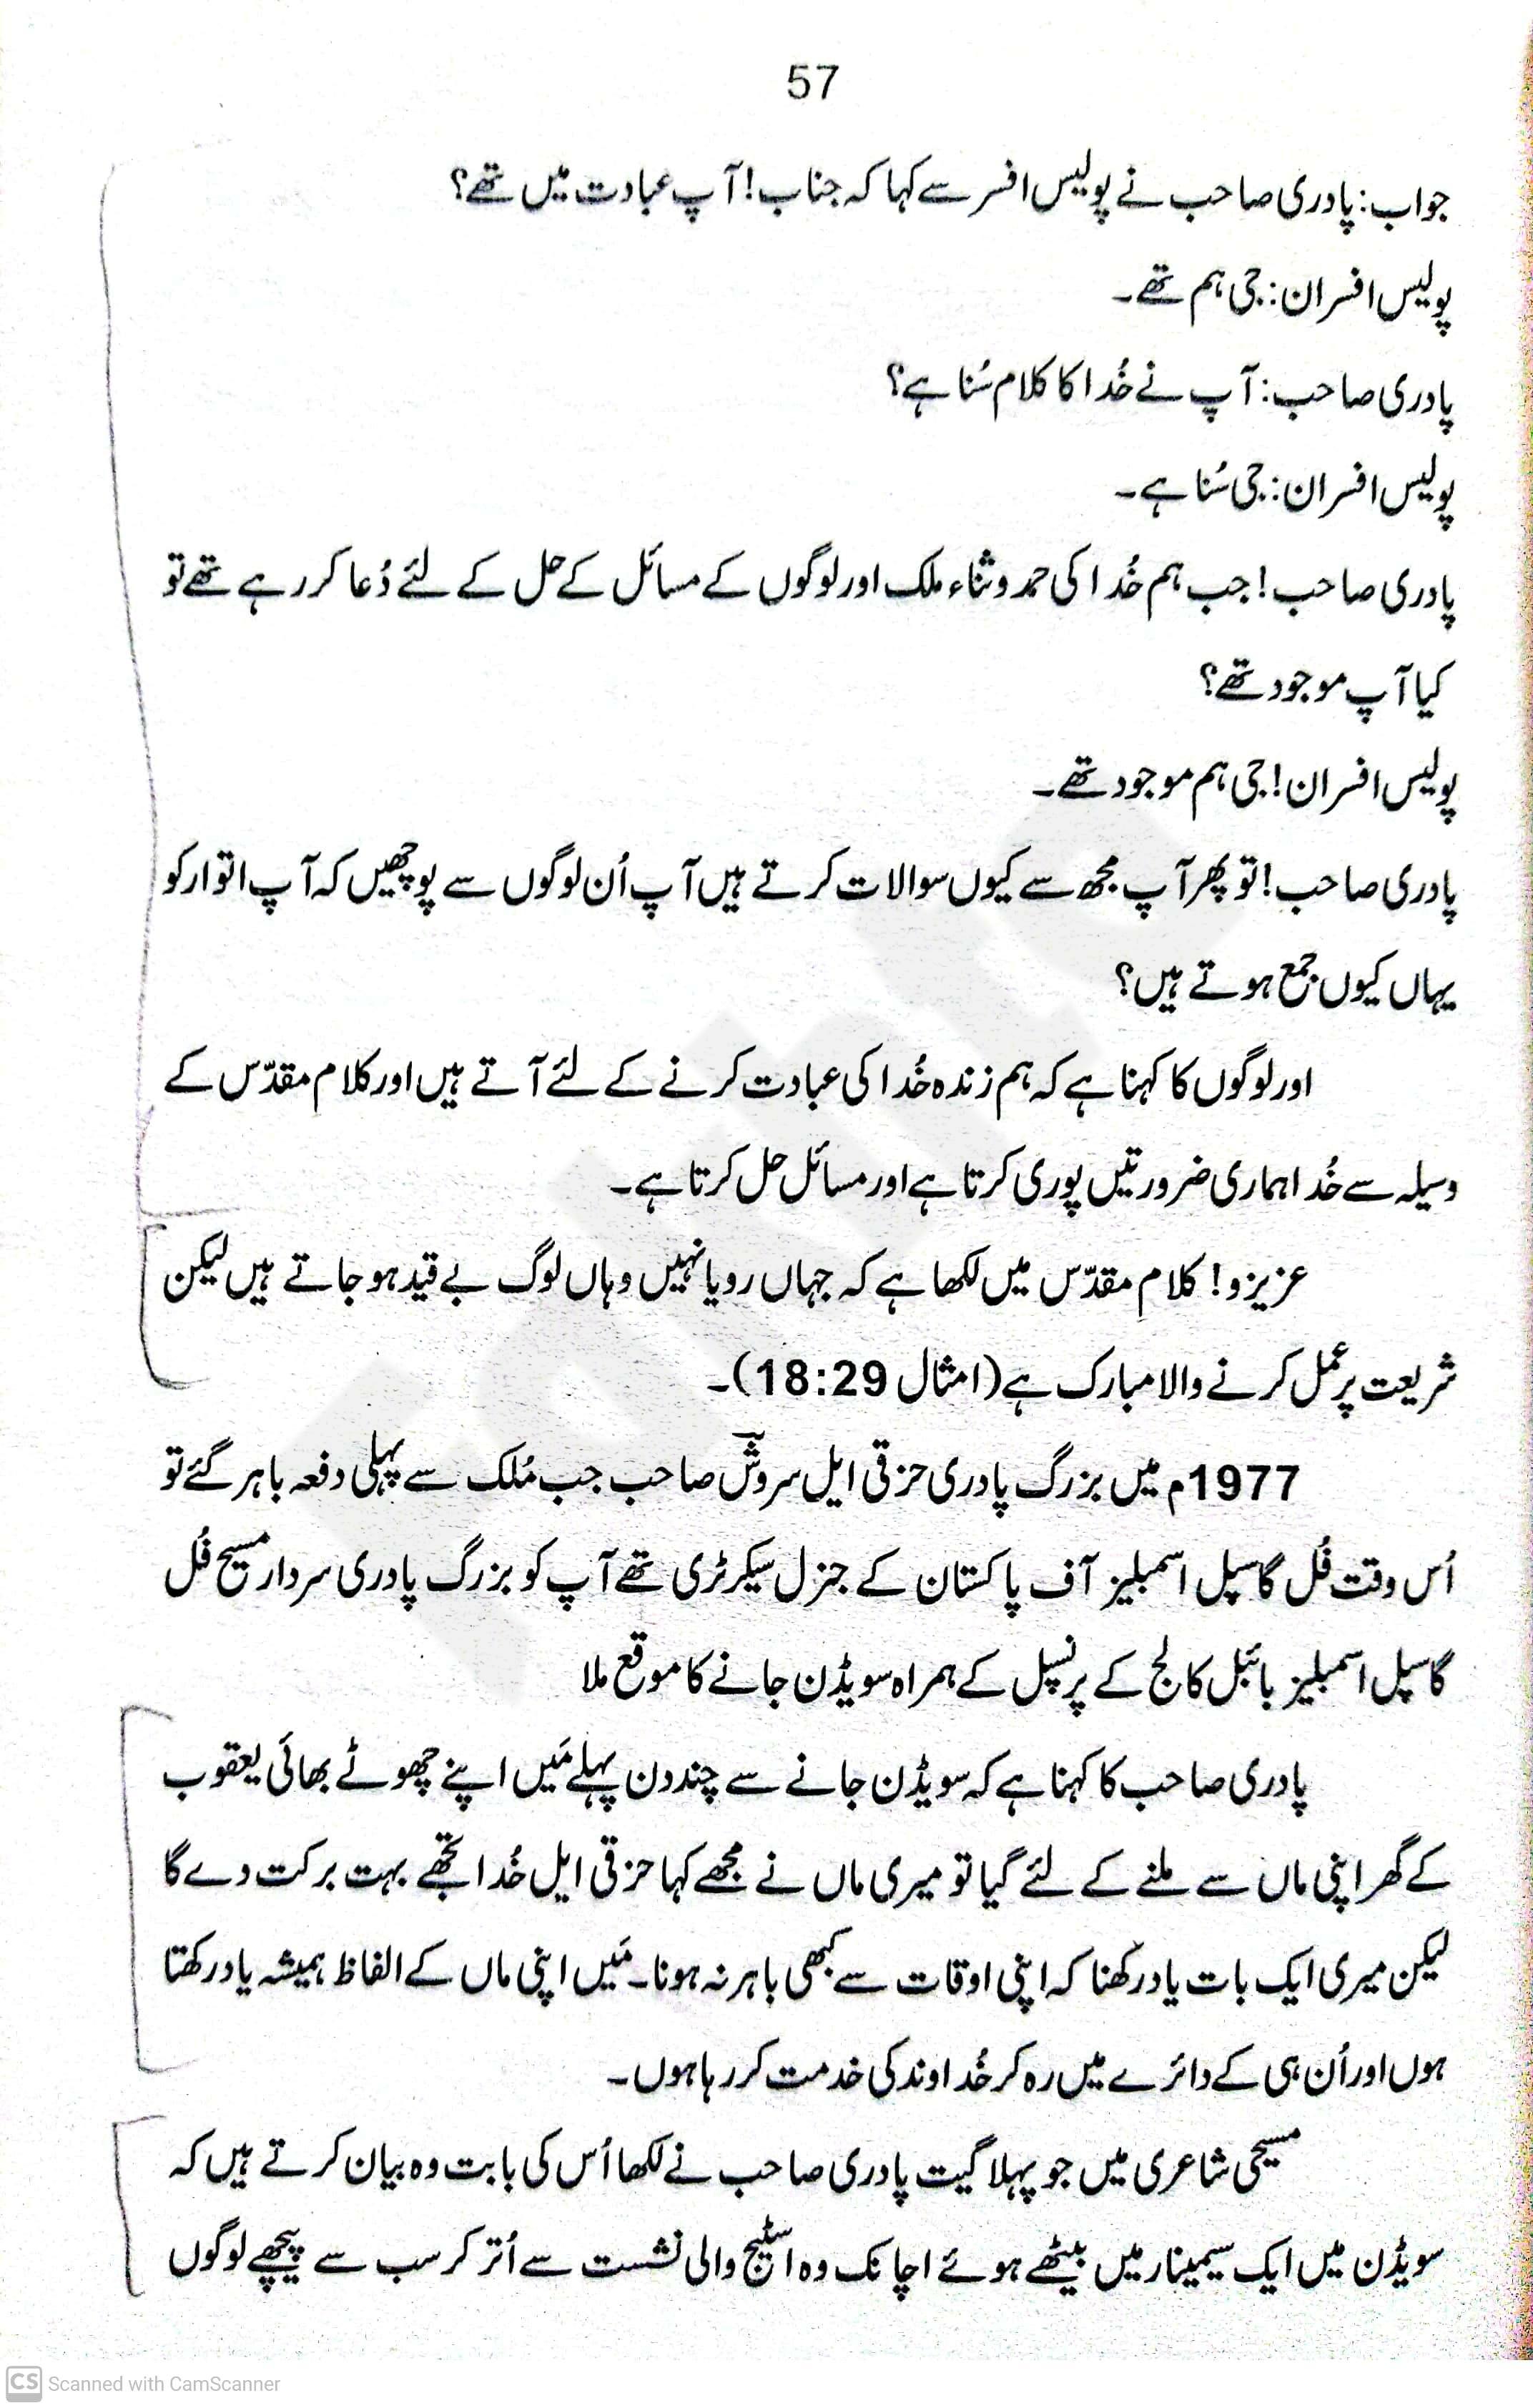 57
جواب: پادری صاحب نے پولیس افسر سے کہا کہ جناب! آپ عبادت میں تھے؟
پولیس افسران: جی ہم تھے۔
پادری صاحب: آپ نے خُدا کا کلام سُنا ہے؟
پولیس افسران: جی سُنا ہے۔
پادری صاحب! جب ہم خُدا کی حمد و ثناء ملک اور لوگوں کے مسائل کے حل کے لئے دُعا کر رہے تھے تو
کیا آپ موجود تھے؟
پولیس افسران! جی ہم موجود تھے۔
پادری صاحب! تو پھر آپ مجھ سے کیوں سوالات کرتے ہیں آپ اُن لوگوں سے پوچھیں کہ آپ اتوار کو
یہاں کیوں جمع ہوتے ہیں؟
اور لوگوں کا کہنا ہے کہ ہم زندہ خُدا کی عبادت کرنے کے لئے آتے ہیں اور کلام مقدّس کے
وسیلہ سے خُدا ہماری ضرورتیں پوری کرتا ہے اور مسائل حل کرتا ہے۔
عزیزو! کلامِ مقدّس میں لکھا ہے کہ جہاں رویا نہیں وہاں لوگ بے قید ہو جاتے ہیں لیکن
شریعت پر عمل کرنے والا مبارک ہے (امثال 18:29)۔
1977م میں بزرگ پادری حزقی ایل سروشؔ صاحب جب مُلک سے پہلی دفعہ باہر گئے تو
اُس وقت فُل گاسپل اسمبلیز آف پاکستان کے جنرل سیکرٹری تھے آپ کو بزرگ پادری سردار مسیح فُل
گاسپل اسمبلیز بائبل کالج کے پرنسپل کے ہمراہ سویڈن جانے کا موقع ملا
پادری صاحب کا کہنا ہے کہ سویڈن جانے سے چند دن پہلے مَیں اپنے چھوٹے بھائی یعقوب
کے گھر اپنی ماں سے ملنے کے لئے گیا تو میری ماں نے مجھے کہا حزقی ایل خُدا تجھے بہت برکت دے گا
لیکن میری ایک بات یاد رکھنا کہ اپنی اوقات سے کبھی باہر نہ ہونا۔ مَیں اپنی ماں کے الفاظ ہمیشہ یاد رکھتا
ہوں اور اُن ہی کے دائرے میں رہ کر خُداوند کی خدمت کر رہا ہوں۔
مسیحی شاعری میں جو پہلا گیت پادری صاحب نے لکھا اُس کی بابت وہ بیان کرتے ہیں کہ
سویڈن میں ایک سیمینار میں بیٹھے ہوئے اچانک وہ اسٹیج والی نشست سے اُتر کر سب سے پیچھے لوگوں
CS Scanned with CamScanner